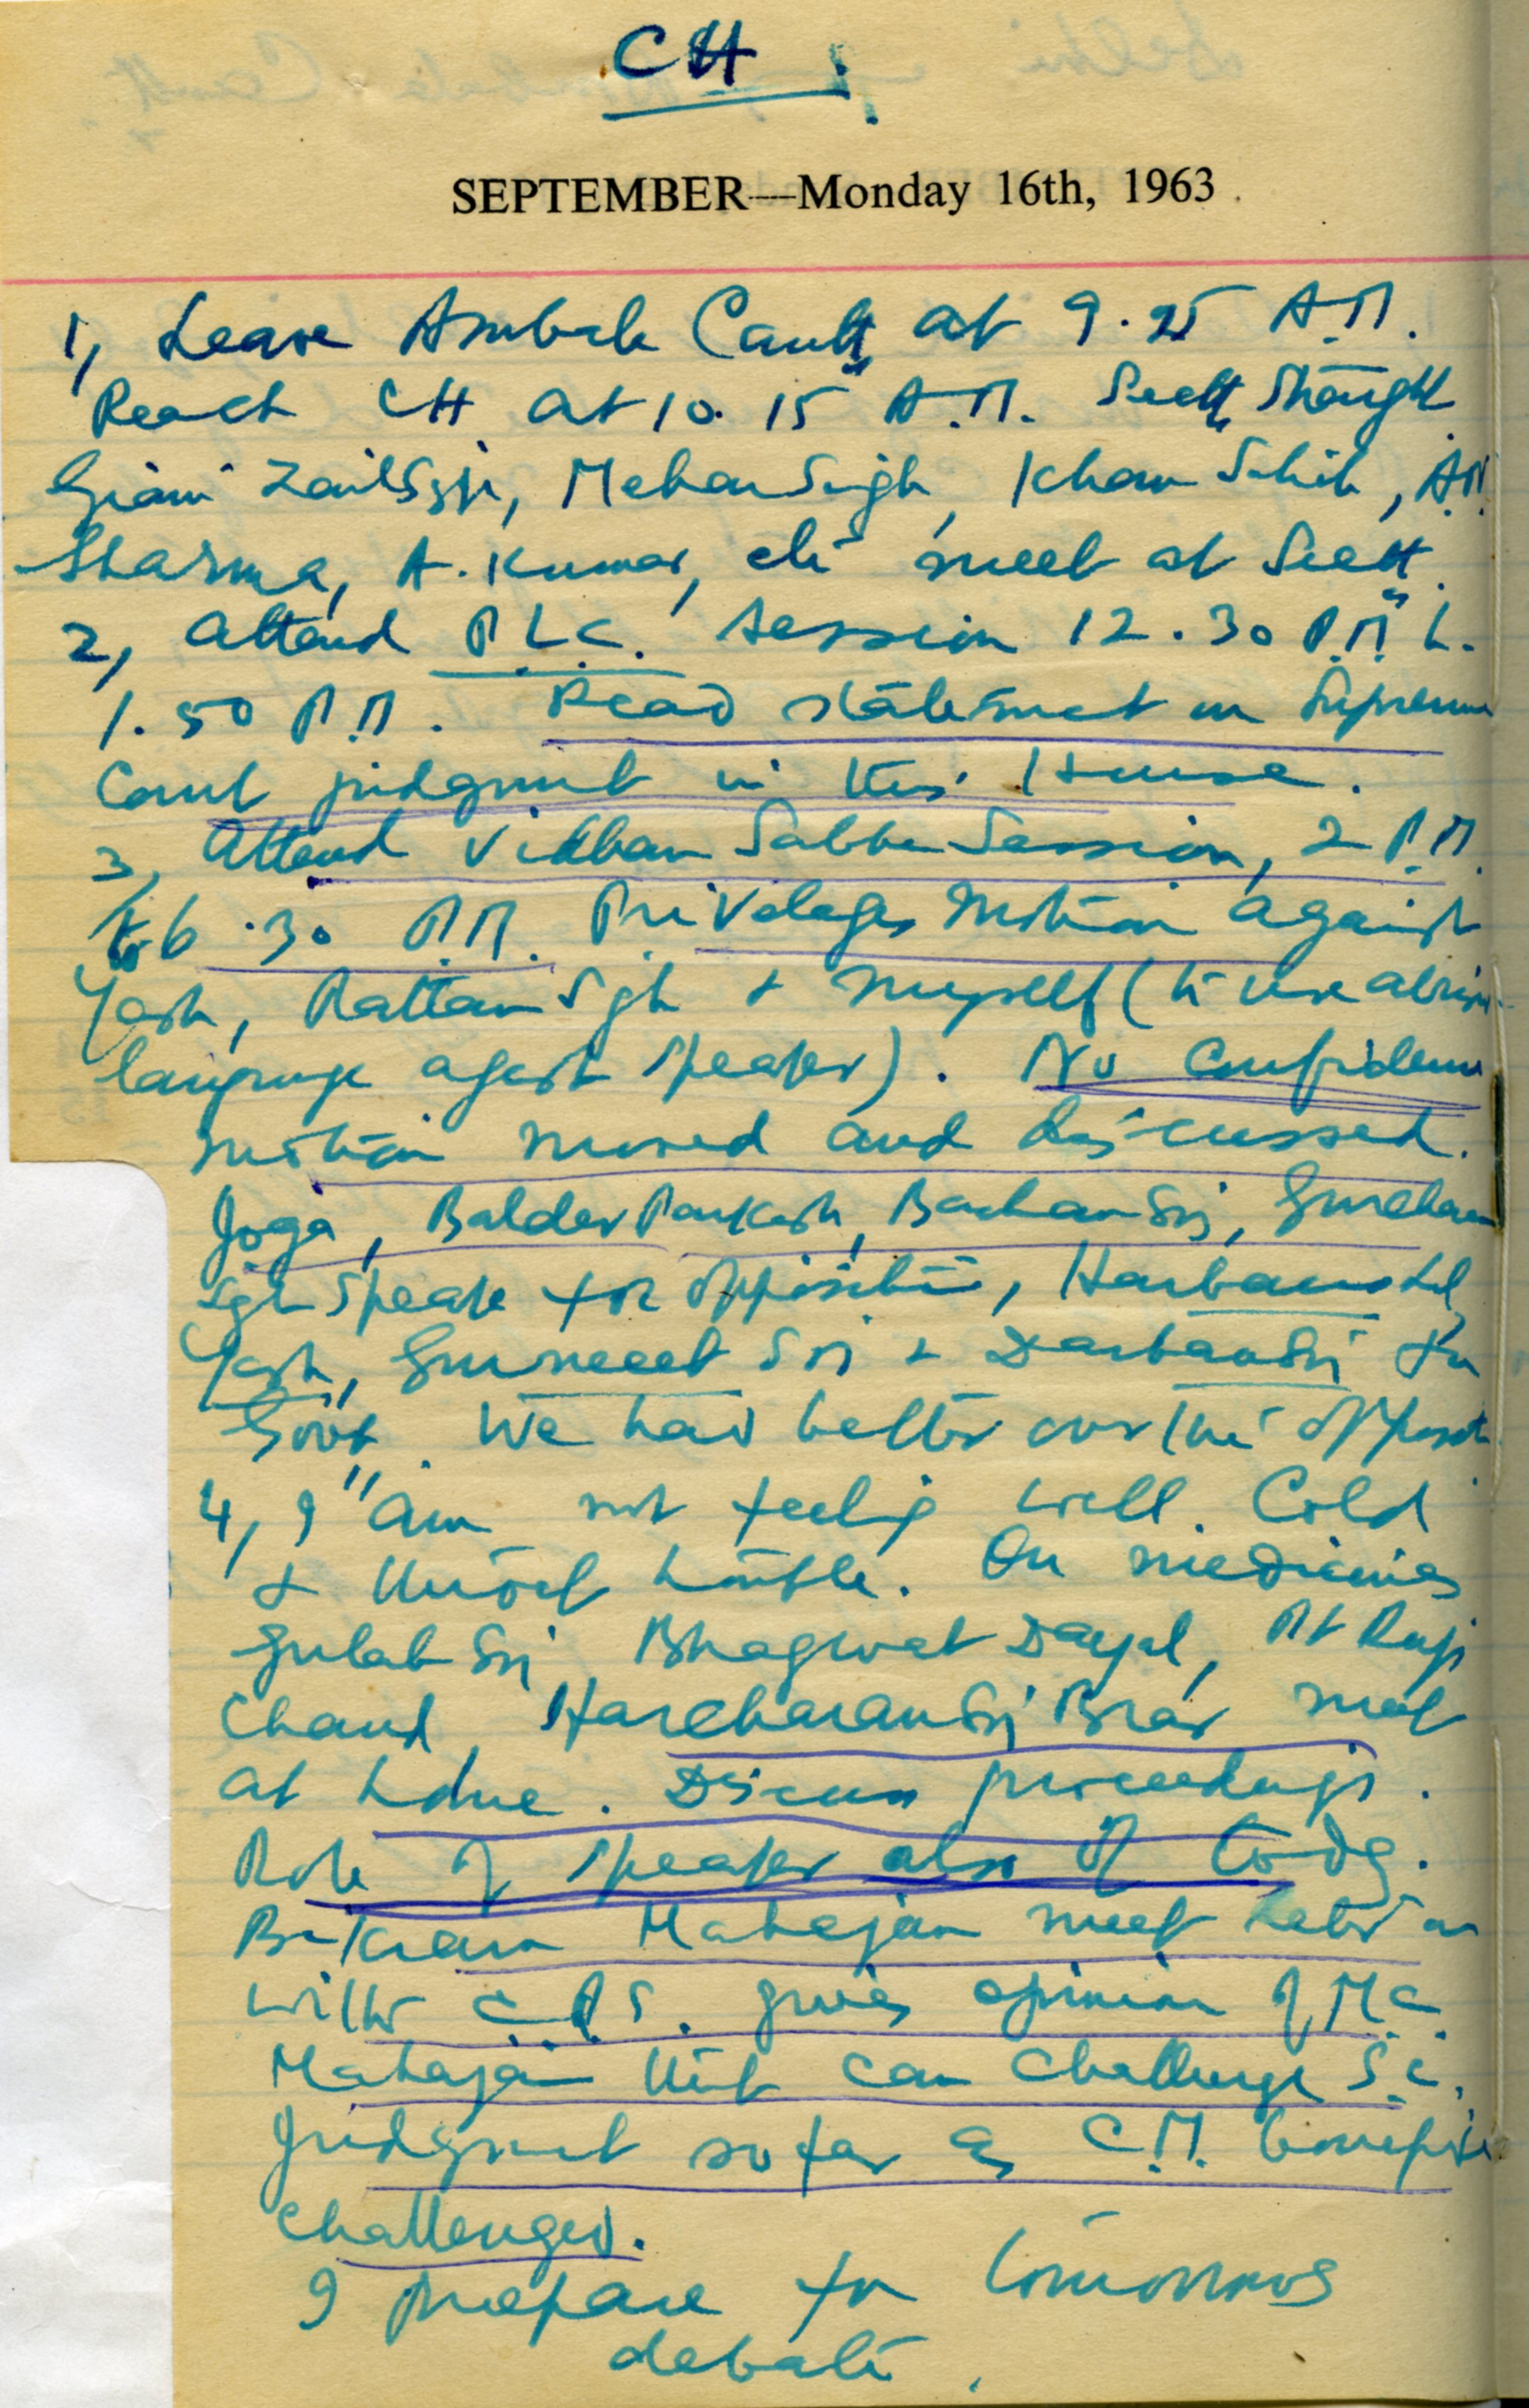 CH
SEPTEMBER—Monday 16th, 1963
1, Leave Ambala Cantt at 9.25 A.M.
Reach CH at 10.15 A.M. Sectt Straight
Giani Zail Sgji, Mehar Singh, Khan Sahib, A.N.
Sharma, A. Kumar, etc meet at Sectt.
2, Attend P.L.C. session 12.30 P.M. to
1.50 P.M. Read statement on Supreme
Court judgment in this House.
3, Attend Vidhan Sabha Session, 2 P.M.
to 6.30 P.M. Priveleges motion against
Yash, Rattan Sgh + myself (to use abusive
language agest speaker). No Confidence
motion moved and discussed.
Joga, Baldev Parkash, Bachan Sgj, Gurcharan
Sgh Speak for opposition, Harbans Lal,
Yash, Gurmeet Sgj + Darbara Sgj for
Govt. We had better over the opposition
4, I am not feeling well. Cold
+ throat trouble. On medicines
Gulab Sgj, Bhagwat Dayal, Pt
Chand Harcharan Sgj Brar met
at home. Discuss proceedings.
Role of speaker also of today.
Bikram Mahajan meet later on
with C.P.S. gives opinion of M.C.
Mahajan that can challenge S.C.
Judgment so far as C.M.
challenged.
I prepare for tomorrows
debate.